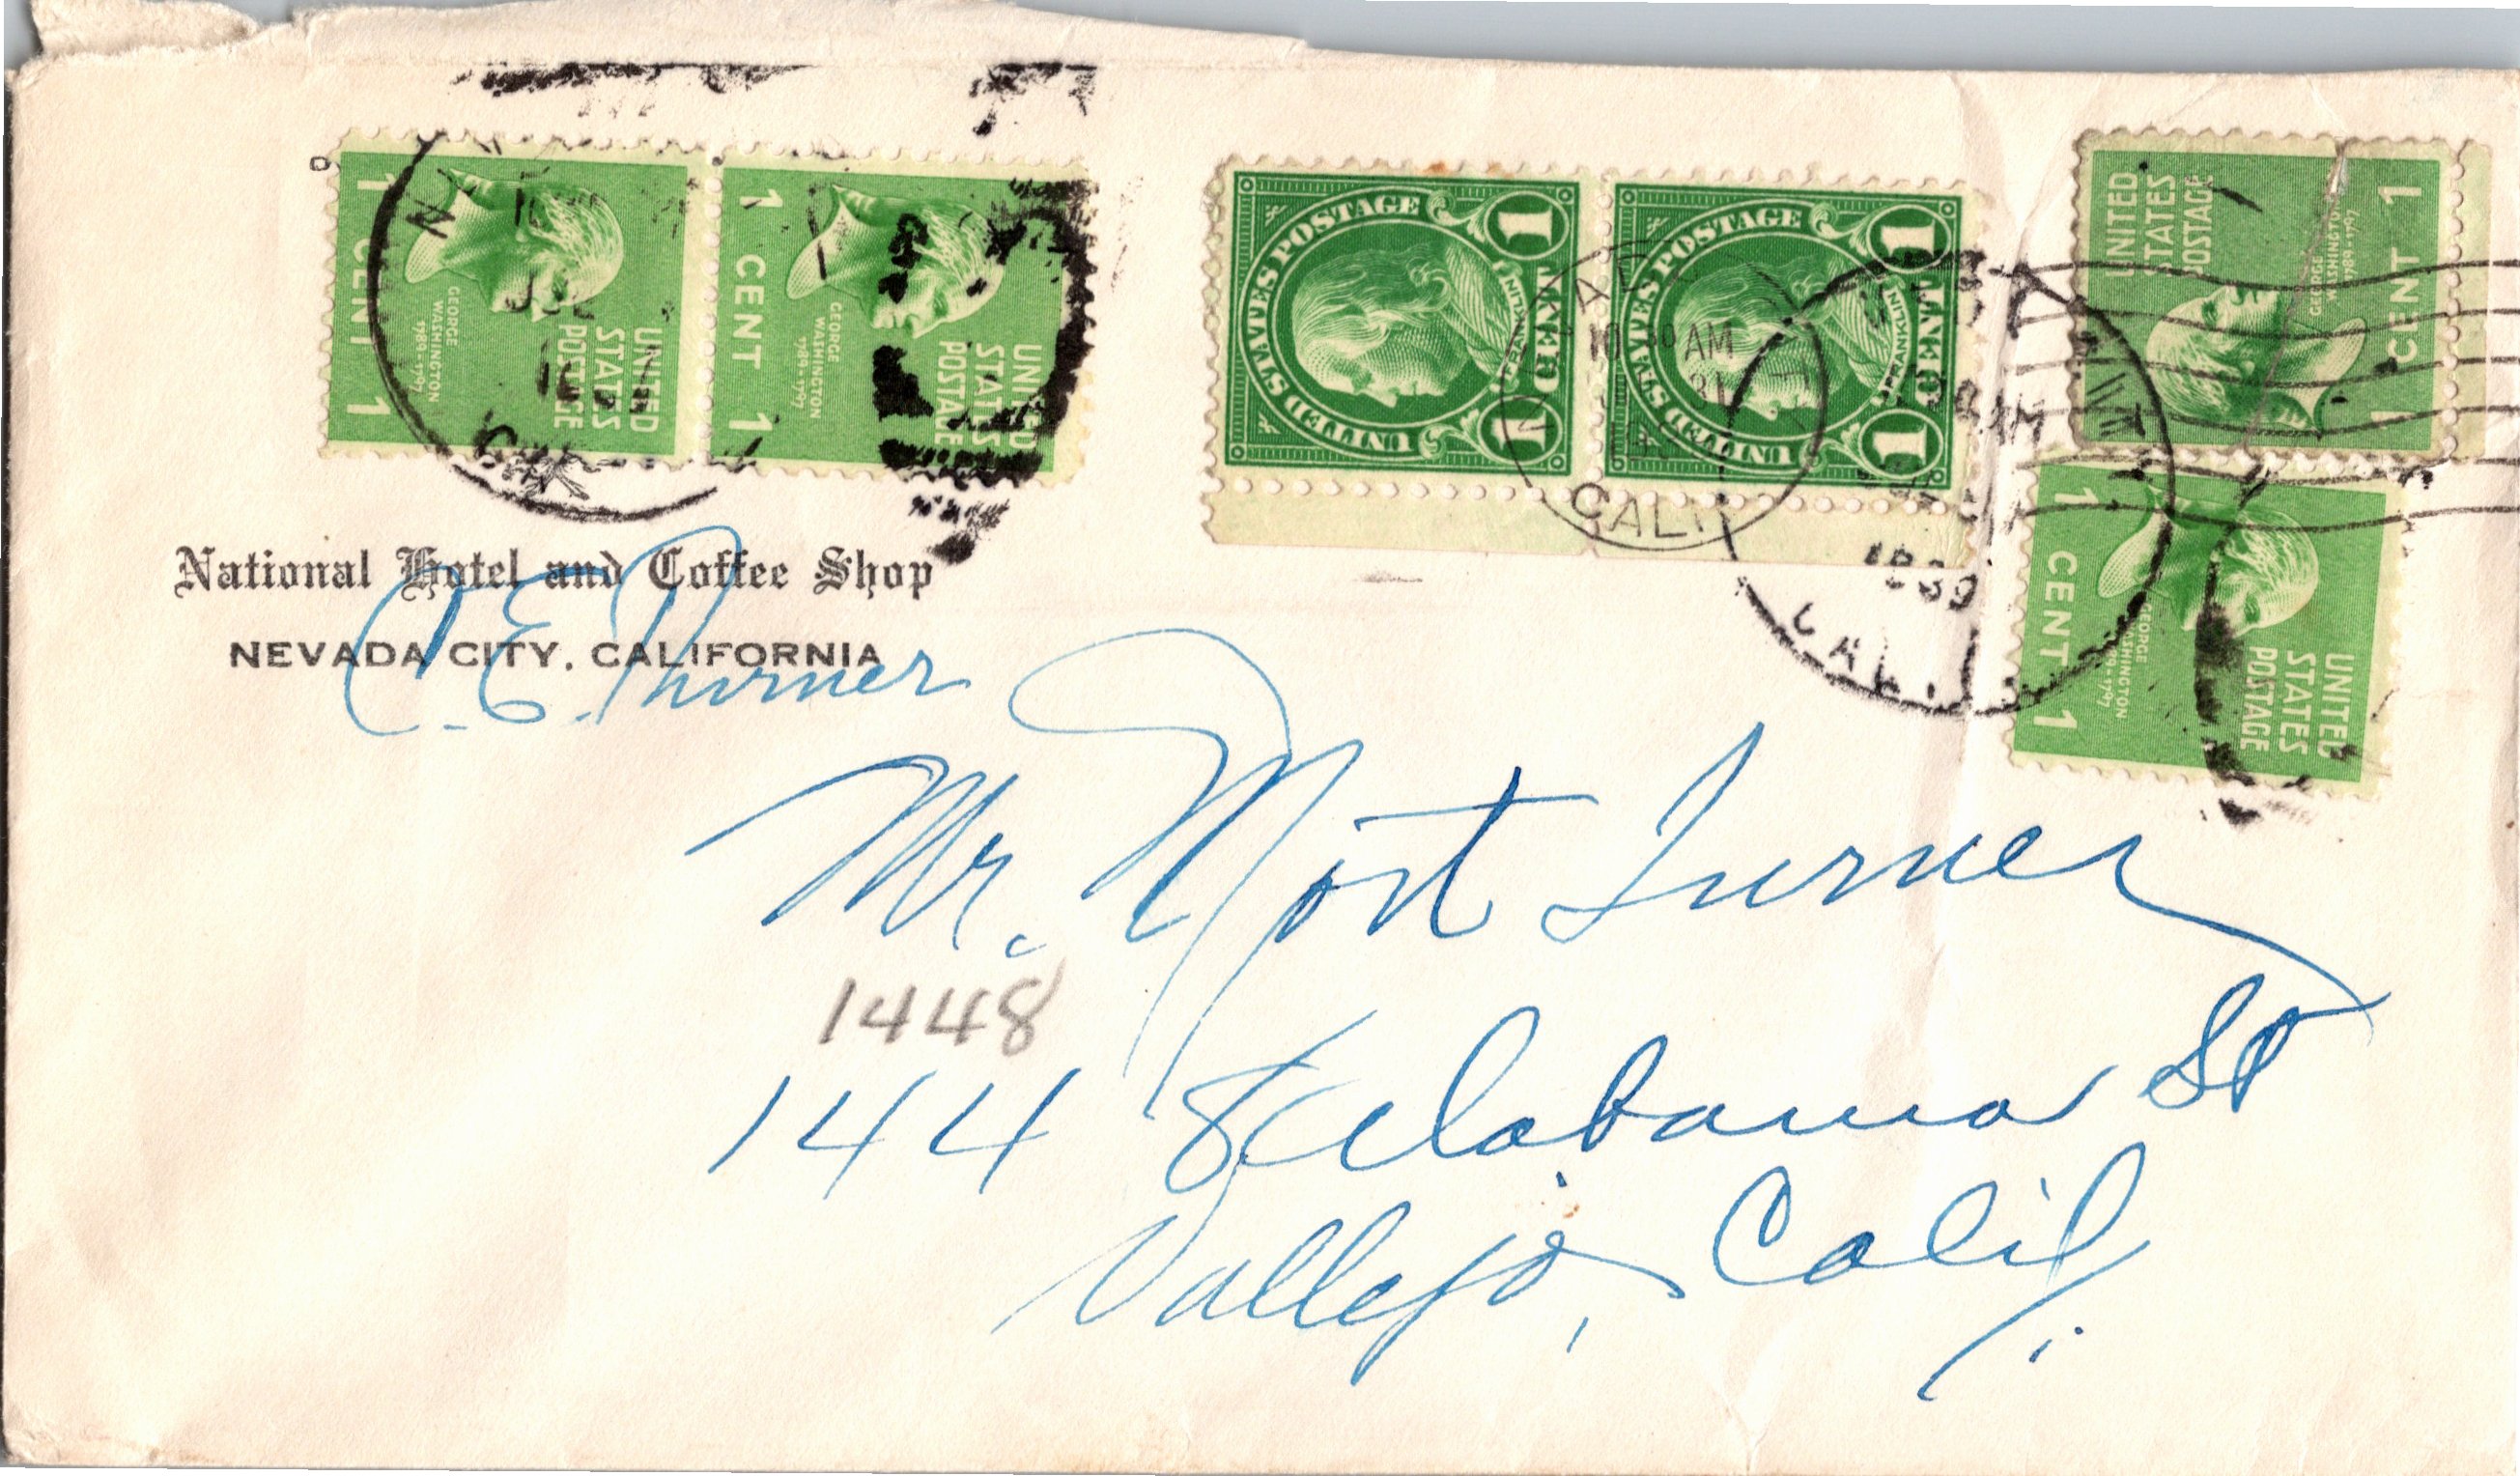 1 CENT 1
GEORGE
WASHINGTON
1789-1797
UNITED
STATES
POSTAGE
1 CENT 1
GEORGE
WASHINGTON
1789-1797
UNITED
STATES
POSTAGE
UNITED STATES POSTAGE
FRANKLIN
1 CENT 1
UNITED STATES POSTAGE
FRANKLIN
1 CENT 1
UNITED
STATES
POSTAGE
GEORGE
WASHINGTON
1789-1797
1 CENT 1
1 CENT 1
GEORGE
WASHINGTON
1789-1797
UNITED
STATES
POSTAGE
AM
31
CALI
CAL.
National Hotel and Coffee Shop
NEVADA CITY, CALIFORNIA
Mr. Mort Turner
1448
144 Alabama St
Vallejo, Calif.